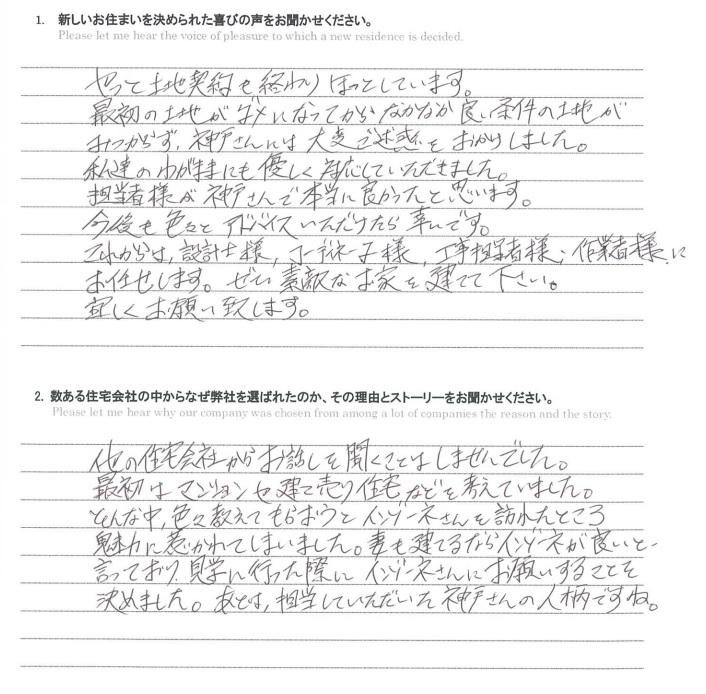 1. 新しいお住まいを決められた喜びの声をお聞かせください。
Please let me hear the voice of pleasure to which a new residence is decided.
やっと土地契約も終わりほっとしています。
最初の土地がダメになってからなかなか良い条件の土地が
みつからず、神戸さんには大変ご迷惑をおかけしました。
私達のわが儘にも優しく対応していただきました。
担当者様が神戸さんで本当に良かったと思います。
今後も色々とアドバイスいただけたら幸いです。
これからは、設計士様、コーディネーター様、工事担当者様、作業者様に
お任せします。ぜひ素敵なお家を建てて下さい。
宜しくお願い致します。
2. 数ある住宅会社の中からなぜ弊社を選ばれたのか、その理由とストーリーをお聞かせください。
Please let me hear why our company was chosen from among a lot of companies the reason and the story.
他の住宅会社からお話しを聞くことはしませんでした。
最初はマンションや建て売り住宅などを考えていました。
そんな中、色々教えてもらおうとインゾーネさんを訪れたところ
魅力に惹かれてしまいました。妻も建てるならインゾーネが良いと
言っており、見学に行った際にインゾーネさんにお願いすることを
決めました。あとは、担当していただいた神戸さんの人柄ですね。